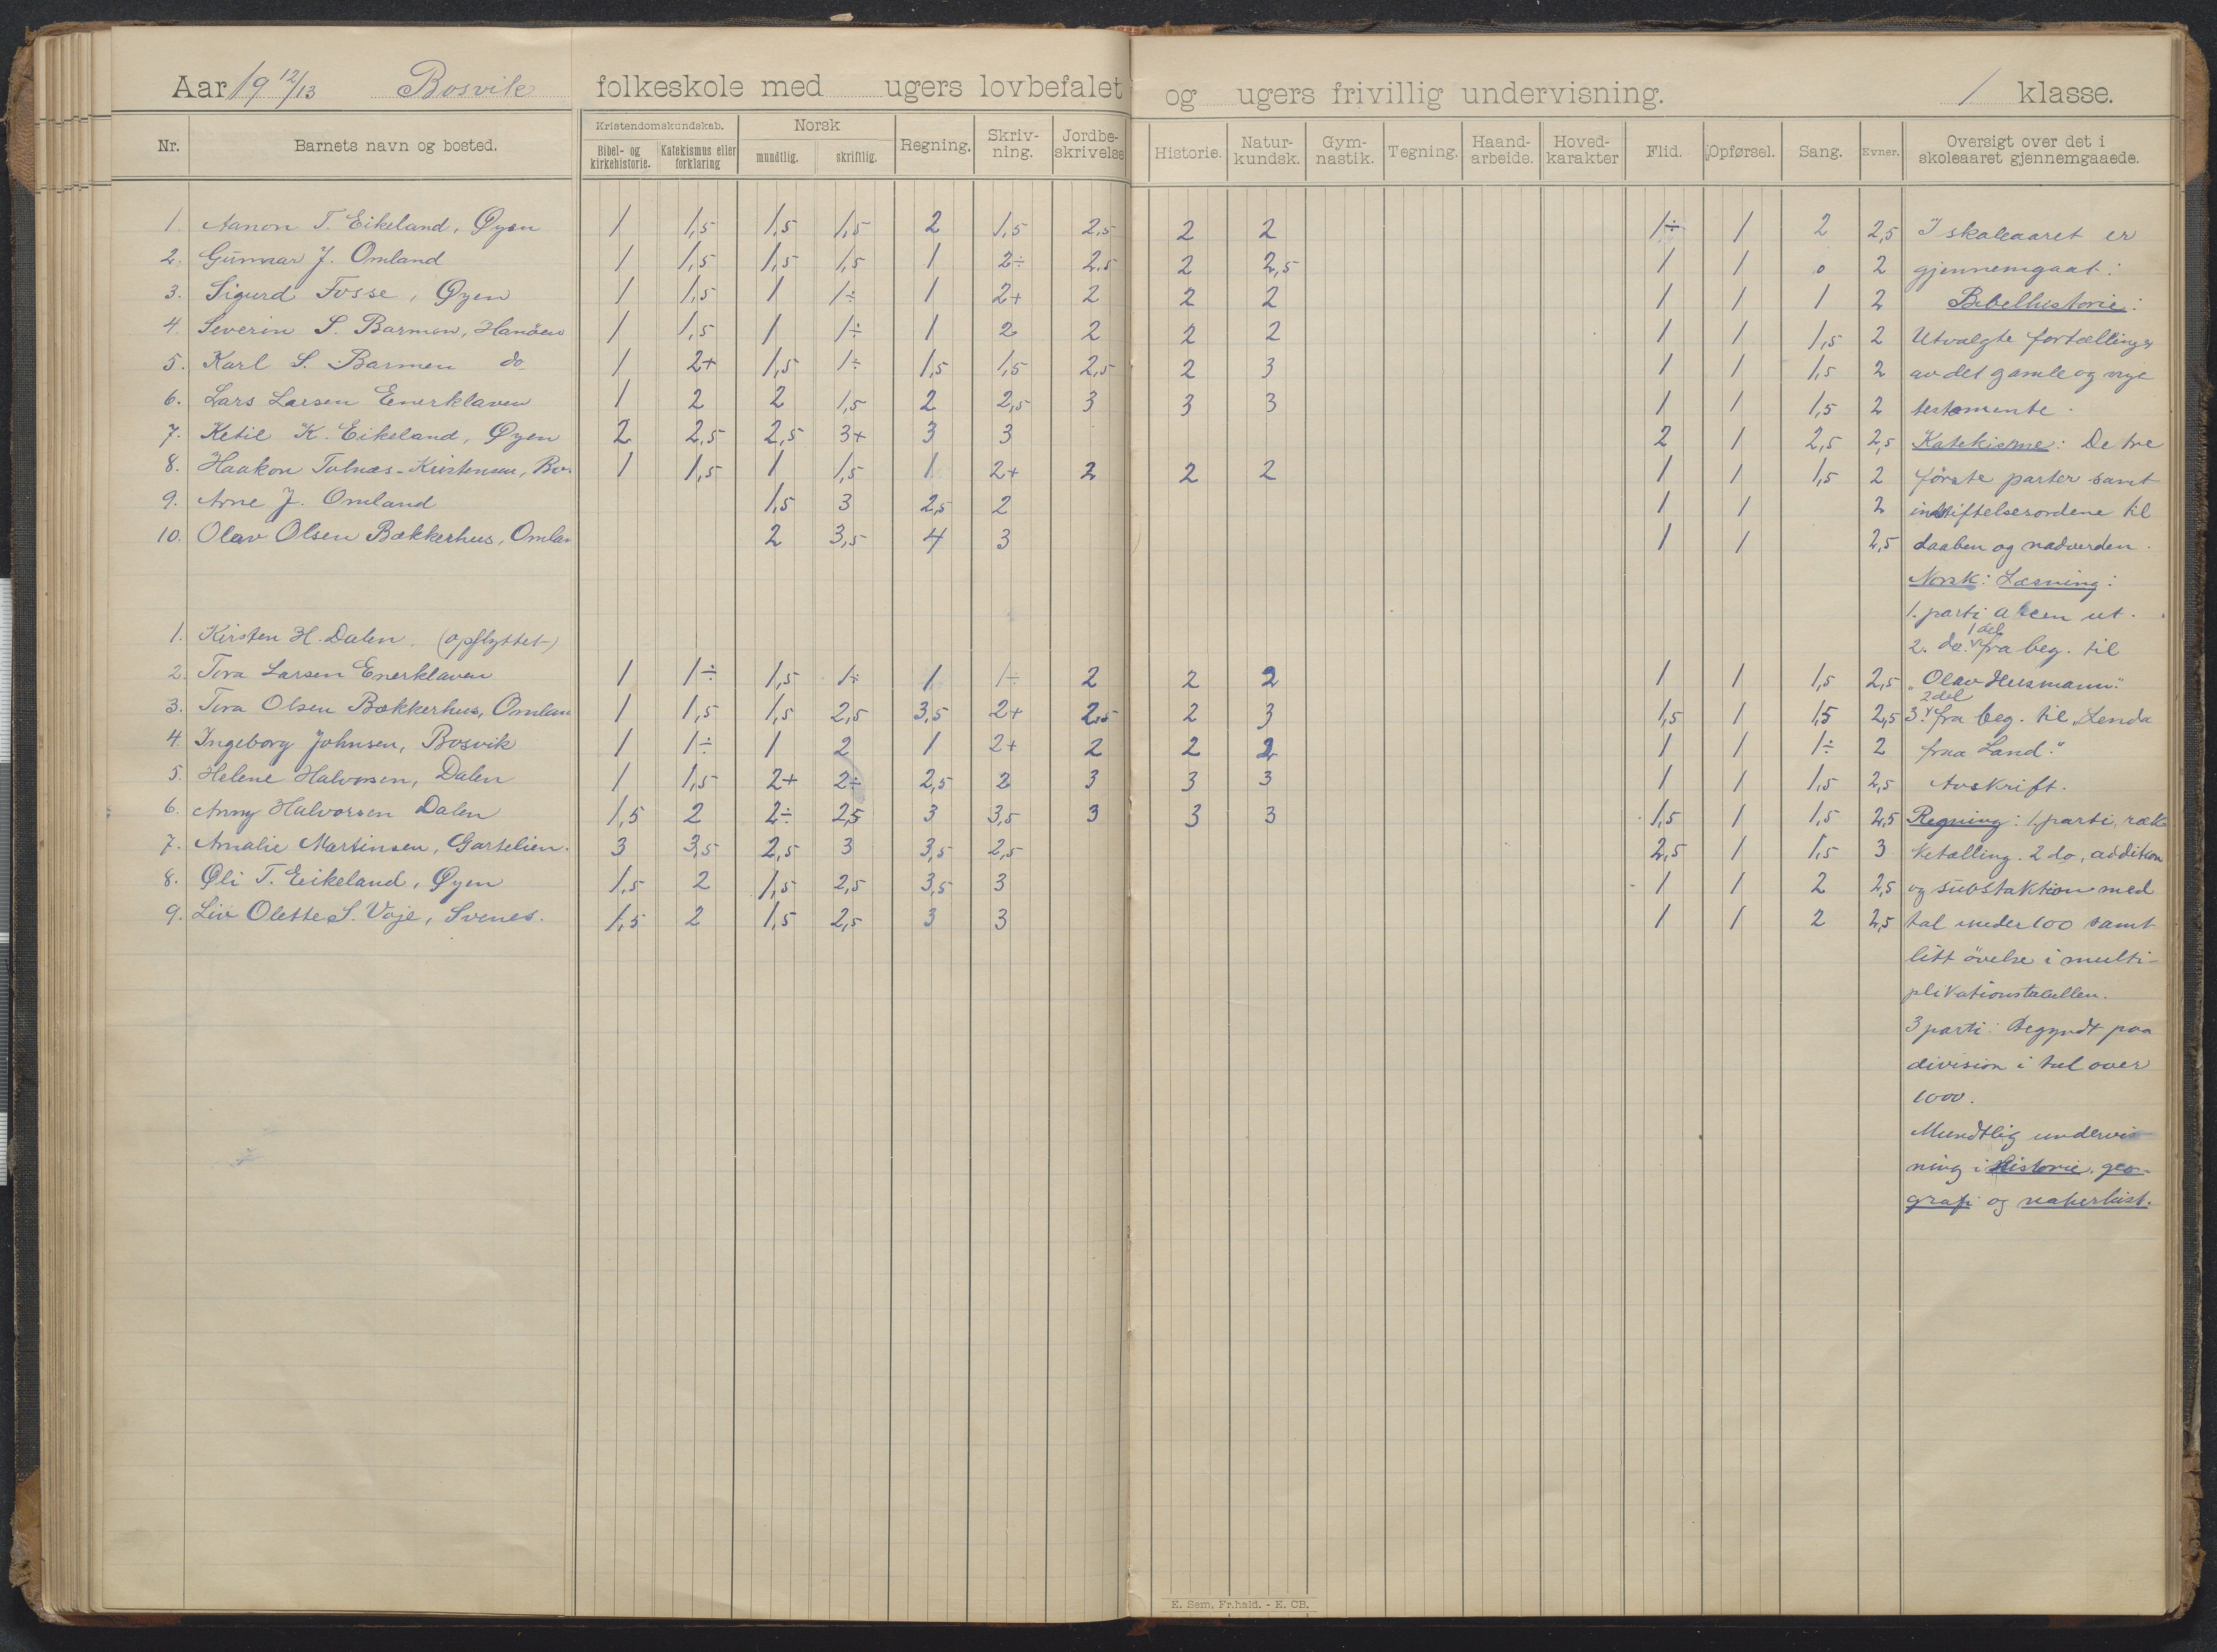 Aar 19 12/13 Bosvik folkeskole med ugers lovbefalet og ugers frivillig undervisning. 1 klasse.
Nr. Barnets navn og bosted. Kristendomskundskab. Bibel- og kirkehistorie. Katekismus eller forklaring Norsk mundtlig. skriftlig. Regning. Skriv-ning. Jordbe-skrivelse Historie. Natur-kundsk. Gym-nastik. Tegning. Haand-arbeide. Hoved-karakter Flid. Opførsel. Sang. Evner. Oversigt over det i skoleaaret gjennemgaaede.
1. Aanon T. Eikeland, Øyen 1 1,5 1,5 1,5 2 1,5 2,5 2 2 1÷ 1 2 2,5 I skoleaaret er
2. Gunnar J. Omland 1 1,5 1,5 1,5 1 2÷ 2,5 2 2,5 1 1 0 2 gjennemgaat:
3. Sigurd Fosse, Øyen 1 1,5 1 1÷ 1 2+ 2 2 2 1 1 1 2 Bibelhistorie:
4. Severin S. Barmen, Hanöen 1 1,5 1 1÷ 1 2 2 2 2 1 1 1,5 2 Utvalgte fortællinger
5. Karl S. Barmen do. 1 2+ 1,5 1÷ 1,5 1,5 2,5 2 3 1 1 1,5 2 av det gamle og nye
6. Lars Larsen Enerklaven 1 2 2 1,5 2 2,5 3 3 3 1 1 1,5 2 testamente.
7. Ketil K. Eikeland, Øyen 2 2,5 2,5 3+ 3 3 2 1 2,5 2,5 Katekisme: De tre
8. Haakon Tolnæs-Kristensen, Bo. 1 1,5 1 1,5 1 2+ 2 2 2 1 1 1,5 2 første parter samt
9. Arne J. Omland 1,5 3 2,5 2 1 1 2 indstiftelsesordene til
10. Olav Olsen Bækkerhus, Omlan 2 3,5 4 3 1 1 2,5 daaben og nadverden.
Norsk: Læsning:
1. parti abcen ut.
1. Kirsten H. Dalen. (opflyttet) 2. do. 1 del fra beg. til
2. Tora Larsen Enerklaven 1 1÷ 1,5 1÷ 1 1÷ 2 2 2 1 1 1,5 2,5 "Olav Husmann."
3. Tora Olsen Bækkerhus, Omlan 1 1,5 1,5 2,5 3,5 2+ 2,5 2 3 1,5 1 1,5 2,5 3. 2 del fra beg. til "Lenda
4. Ingeborg Johnsen, Bosvik 1 1÷ 1 2 1 2+ 2 2 2 1 1 1÷ 2 fraa Land."
5. Helene Halvorsen, Dalen 1 1,5 2+ 2÷ 2,5 2 3 3 3 1 1 1,5 2,5 Avskrift.
6. Anny Halvorsen Dalen 1,5 2 2÷ 2,5 3 3,5 3 3 3 1,5 1 1,5 2,5 Regning: 1. parti, ræk-
7. Amalie Martinsen, Gartelien. 3 3,5 2,5 3 3,5 2,5 2,5 1 1,5 3 ketælling. 2 do, addition
8. Øli T. Eikeland, Øyen 1,5 2 1,5 2,5 3,5 3 1 1 2 2,5 og substaktion med
9. Liv Olette S. Voje, Svenes. 1,5 2 1,5 2,5 3 3 1 1 2 2,5 tal under 100 samt
litt övelse i multi-
plikationstabellen.
3 parti: Begyndt paa
division i tal over
1000.
Mundtlig undervis-
ning i Historie, geo-
grafi og naturhist.
E. Sem, Fr.hald. - E. CB.